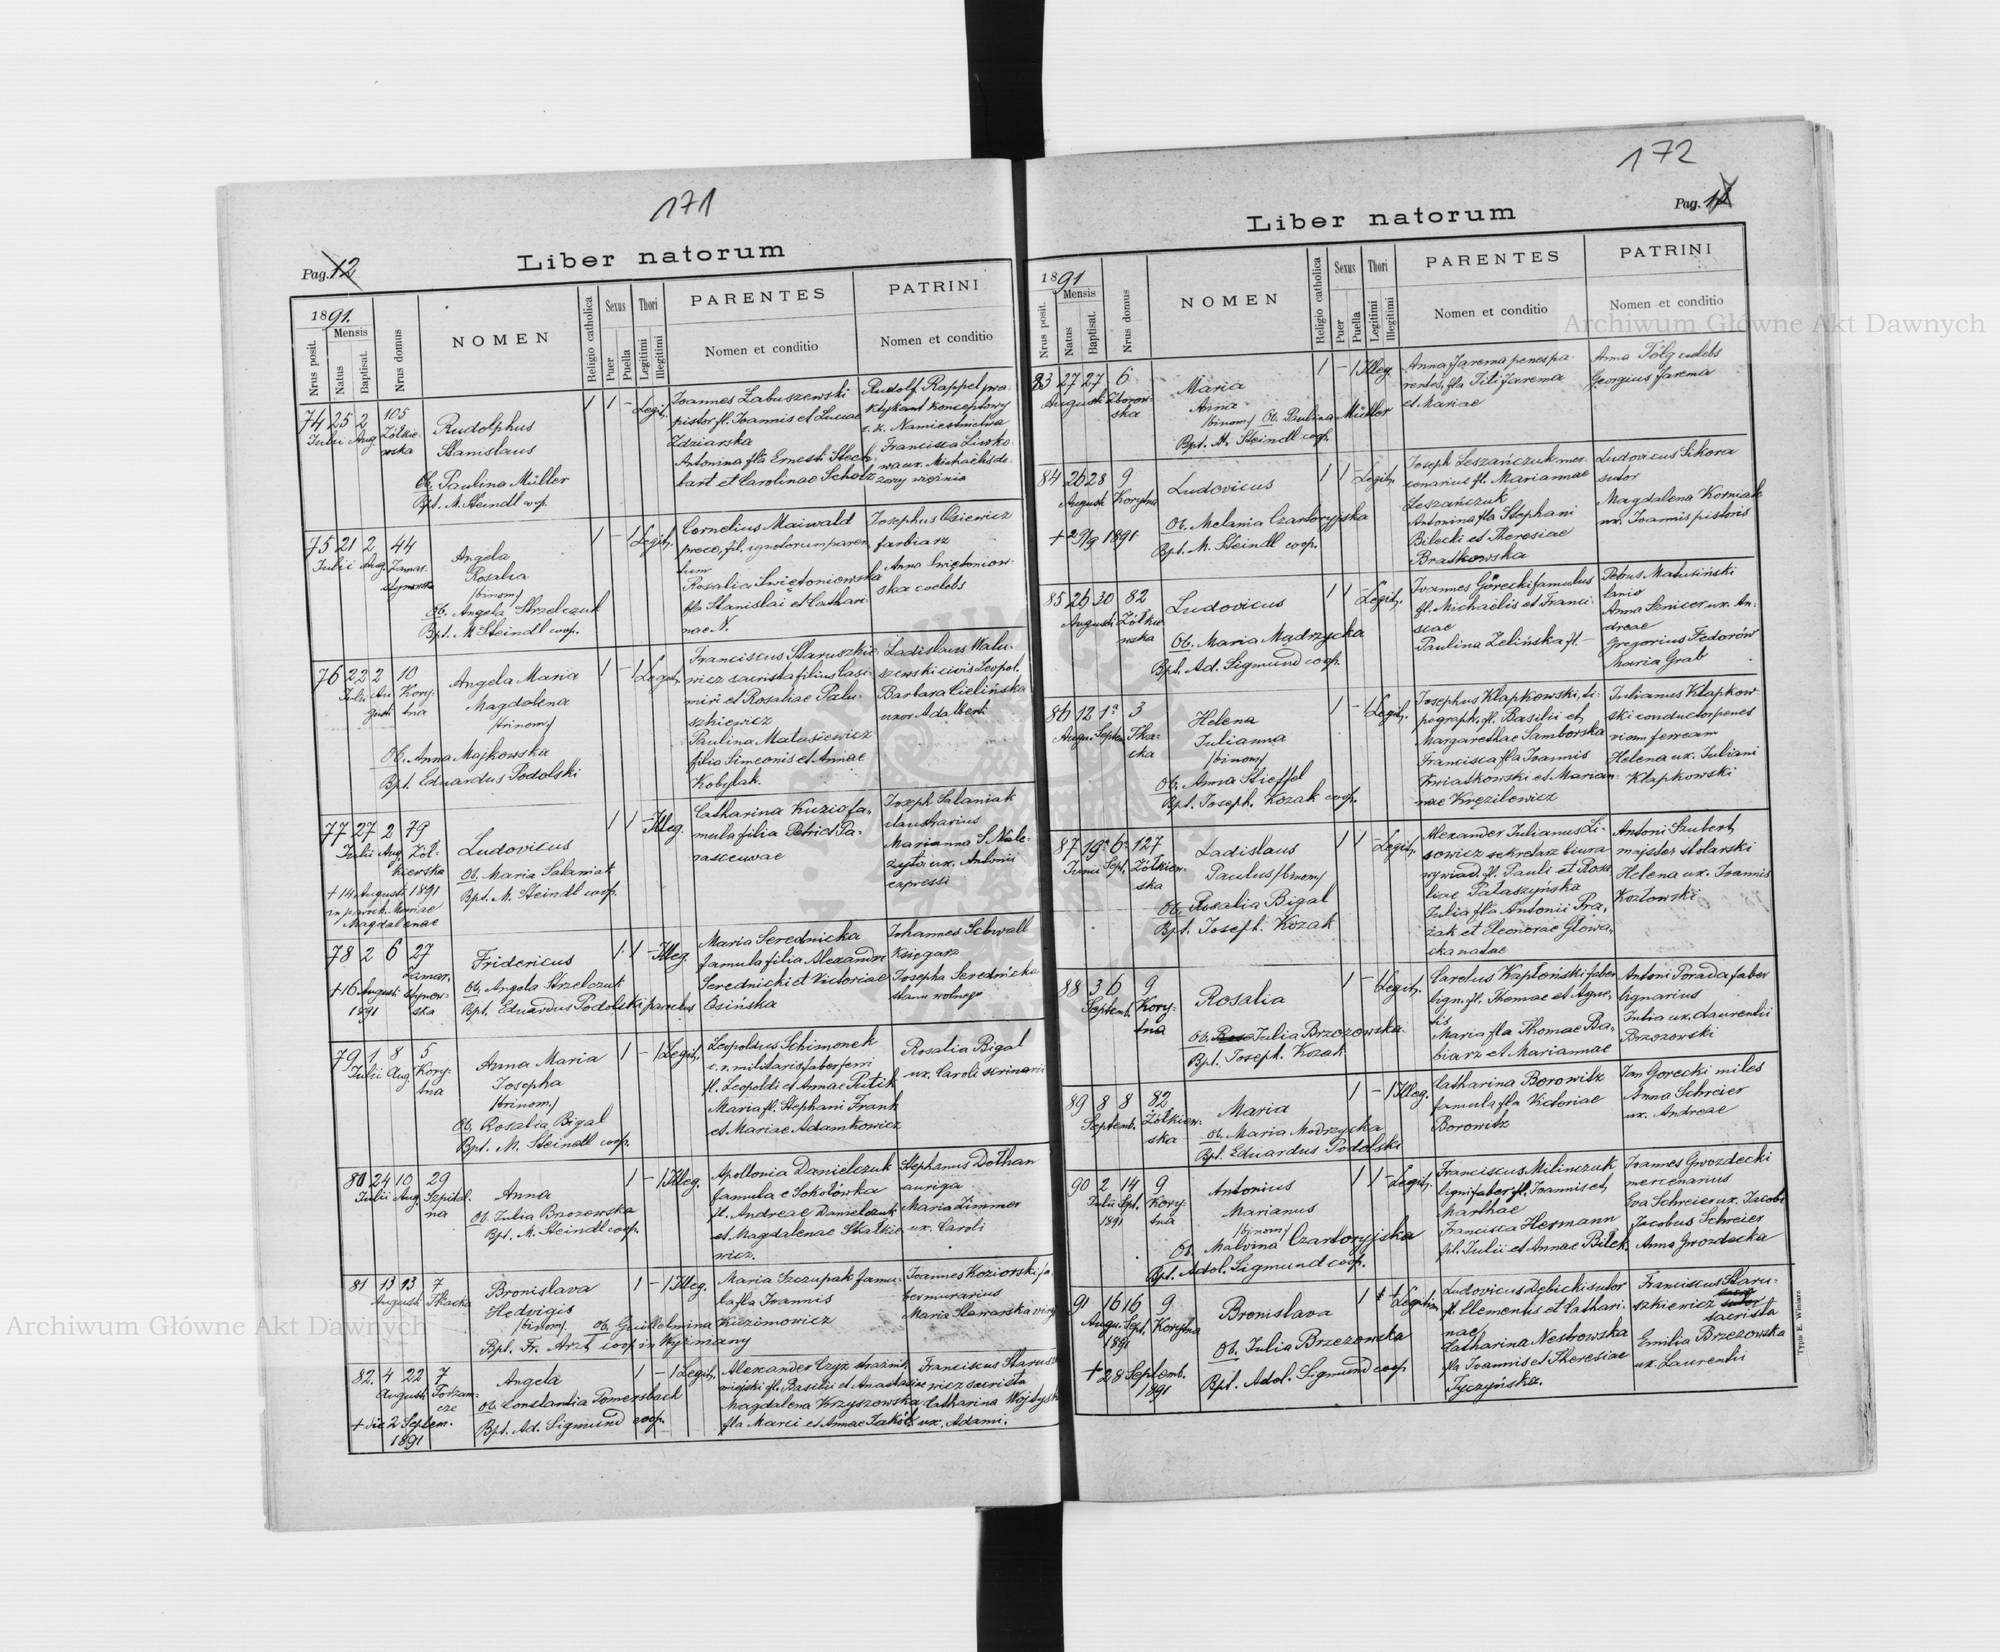 171
Pag. 12
Liber natorum
1891.
Nrus posit.
Mensis
Natus
Baptisat.
Nrus domus
NOMEN
Religio catholica
Sexus
Puer
Puella
Thori
Legitimi
Illegitimi
PARENTES
Nomen et conditio
PATRINI
Nomen et conditio
74 25 2 105
Julii Aug Żółkie-
wska
Rudolphus
Stanislaus
Ob. Paulina Müller
Bpt. M. Steindl coop.
1 1 - Legit.
Joannes Łabuszewski
pistor fl. Joannis et Luciae
Zdziarska
Antonina fla Ernesti Stech-
bart et Carolinae Scholz
Rudolf Rappel pra-
ktykant konceptowy
c. k. Namiestnictwa
Francisca Liwko-
wa ux. Michaelis do-
zorcy więźniów
75 21 2 44
Julii Aug. Zamar-
stynowska
Angela
Rosalia
/binom/
Ob. Angela Strzelczuk
Bpt. M Steindl coop.
1 - 1 Legit.
Cornelius Maiwald
preco, fil. ignotorum paren-
tum
Rosalia Świętoniowska
fla Stanislai et Cathari-
nae N.
Josephus Osiewicz
farbiarz
Anna Świętoniow-
ska coelebs
76 22 2 10
Julii Au- Kory-
gusti tna
Angela Maria
Magdalena
/trinom/
Ob. Anna Majkowska
Bpt. Eduardus Podolski
1 - 1 Legit.
Franciscus Staruszkie-
wicz sacrista filius Casi-
miri et Rosaliae Palu-
szkiewicz
Paulina Matusiewicz
filia Simeonis et Annae
Kobylak.
Ladislaus Malu-
szewski civis Leopol.
Barbara Cielińska
uxor Adalberti
77 27 2 79
Julii Aug. Żół-
kiewska
+ 14 Augusti 1891
in paroch. Mariae
Magdalenae
Ludovicus
Ob. Maria Salaniak
Bpt. M. Steindl coop.
1 1 - Illeg.
Catharina Kuzio fa-
mula filia Petri et Pa-
rasceuvae
Joseph Salaniak
Marianna S. Nale-
żyto ux. Antonii
expressi
78 2 6 27
Augusti Zamar-
stynow-
ska
+ 16
1891
Fridericus
Ob. Angela Strzelczuk
Bpt. Eduardus Podolski parochus
1 1 - Illeg
Maria Serednicka
famula filia Alexandri
Serednicki et Victoriae
Osińska
Johannes Schwall
Księgarz
Josepha Serednicka
stanu wolnego
79 1 8 5
Julii Aug. Kory-
tna
Anna Maria
Josepha
/trinom/
Ob. Rosalia Bigal
Bpt. M. Steindl coop.
1 - 1 Legit.
Leopoldus Schimonek
c. r. militaris faber ferri
fl. Leopoldi et Annae Putik
Maria fl. Stephani Frank
et Mariae Adamkowicz
Rosalia Bigal
ux. Caroli scrinarii
80 24 10 29
Julii Aug. Szpital-
na
Anna
Ob. Julia Brzozowska
Bpt. M. Steindl coop.
1 - 1 Illeg.
Apollonia Danielczuk
famula e Sokołówka
fl. Andreae Danielczuk
et Magdalenae Skałkie-
wicz.
Stephanus Dothan
auriga
Maria Zimmer
ux. Caroli
81 13 13 7
Augusti Tkacka
Bronislava
Hedvigis
/binom/ Ob. Guillelmina Kuzimowicz
Bpt. Fr. Arzt coop in Wyżniany
1 - 1 Illeg.
Maria Szczupak famu-
la fla Joannis
Joannes Koziorski fa-
ber murarius
Maria Sławarska virgo
82. 4 22 7
Augusti Torzam-
cze
+ die 2 Septem.
1891
Angela
Ob. Constantia Pomersbach
Bpt. Ad. Sigmund coop.
1 - 1 Legit.
Alexander Czyż strażnik
miejski fl. Basilii et Anastasiae
Magdalena Krzyszowska
fla Marci et Annae Zakóść
Franciscus Starusz-
wicz sacrista
Catharina Wojtysk
ux. Adami.
172
Pag. 12
Liber natorum
1891
Nrus posit.
Mensis
Natus
Baptisat.
Nrus domus
NOMEN
Religio catholica
Sexus
Puer
Puella
Thori
Legitimi
Illegitimi
PARENTES
Nomen et conditio
PATRINI
Nomen et conditio
83 27 27 6
Augusti Zborow-
ska
Maria
Anna
/binom/ Ob. Paulina Müller
Bpt. M. Steindl coop.
1 - 1 Illeg
Anna Jarema penes pa-
rentes, fla Titi Jarema
et Mariae
Anna Tölg coelebs
Georgius Jarema
84 26 28 9
Augusti Korytna
+ 29/9 1891
Ludovicus
Ob. Melania Czartoryjska
Bpt. M. Steindl coop.
1 1 Legit.
Joseph Leszańczuk mer-
cenarius fl. Mariannae
Leszańczuk
Antonina fla Stephani
Bilecki et Theresiae
Bratkowska
Ludovicus Sikora
sutor
Magdalena Korniak
ux. Joannis pistoris
85 26 30 82
Augusti Żółkie-
wska
Ludovicus
Ob. Maria Mądrzycka
Bpt. Ad. Sigmund coop.
1 1 - Legit.
Joannes Górecki famulus
fl. Michaelis et Franci-
scae
Paulina Zelińska fl-
Petrus Matusiński
lanio
Anna Sznicer ux. An-
dreae
Gregorius Fedorów
Maria Grab
86 12 1a 3
Augu. Septem. Tka-
cka
Helena
Julianna
/binom/
Ob. Anna Stieffel
Bpt. Joseph. Kozak coop.
1 - 1 Legit.
Josephus Kłapkowski, ti-
pograph. fl. Basilii et
Margarethae Samborska
Francisca fla Joannis
Kwiatkowski et Marian-
nae Kręzilewicz
Julianus Kłapkow-
ski conductor penes
viam ferream
Helena ux. Juliani
Kłapkowski
87 19a 6a 127
Junii Sept. Żółkiew-
ska
Ladislaus
Paulus /binom/
Ob. Rosalia Bigal
Bpt. Joseph. Kozak
1 1 - Legit.
Alexander Julianus Li-
sowicz sekretarz biura
wywiad. fl. Pauli et Rosa-
liae Pałaszyńska
Julia fla Antonii Pra-
żak et Eleonorae Głowa-
cka natae
Antoni Szubert
majster stolarski
Helena ux. Joannis
Kozłowski
88 3 6 9
Septemb. Kory-
tna
Rosalia
Ob. Julia Brzozowska
Bpt. Joseph. Kozak
1 - 1 Legit.
Carolus Kapłoński faber
lign. fl. Thomae et Agne-
tis
Maria fla Thomae Ba-
biarz et Mariannae
Antoni Porada faber
lignarius
Julia ux. Laurentii
Brzozowski
89 8 8 82
Septemb. Żółkiew-
ska
Maria
Ob. Maria Modrzycka
Bpt. Eduardus Podolski
1 - 1 Illeg.
Catharina Borowitz
famula fla Victoriae
Borowitz
Jan Gorecki miles
Anna Schreier
ux. Andreae
90 2 14 9
Julii Spt. Kory-
1891 tna
Antonius
Marianus
/binom/
Ob. Malvina Czartoryjska
Bpt. Adol. Sigmund coop.
1 1 - Legit.
Franciscus Milinczuk
ligni faber fl. Joannis et
Marthae
Francisca Hermann
fil. Julii et Annae Bilek.
Joannes Gwozdecki
mercenarius
Eva Schreier ux. Jacobi
Jacobus Schreier
Anna Gwozdecka
91 16 16 9
Augu. Sept. Korytna
1891
+ 28 Septemb.
1891
Bronislava
Ob. Julia Brzezowska
Bpt. Adol. Sigmund coop
1 Legitim
Ludovicus Dębicki sutor
fl. Clementis et Cathari-
nae
Catharina Nestrowska
fla Joannis et Theresiae
Tyczyńska.
Franciscus Staru-
szkiewicz
sacrista
Emilia Brzezowska
ux. Laurentii
Typis E. Winiarz
Archiwum Główne Akt Dawnych
Archiwum Główne Akt Dawnych